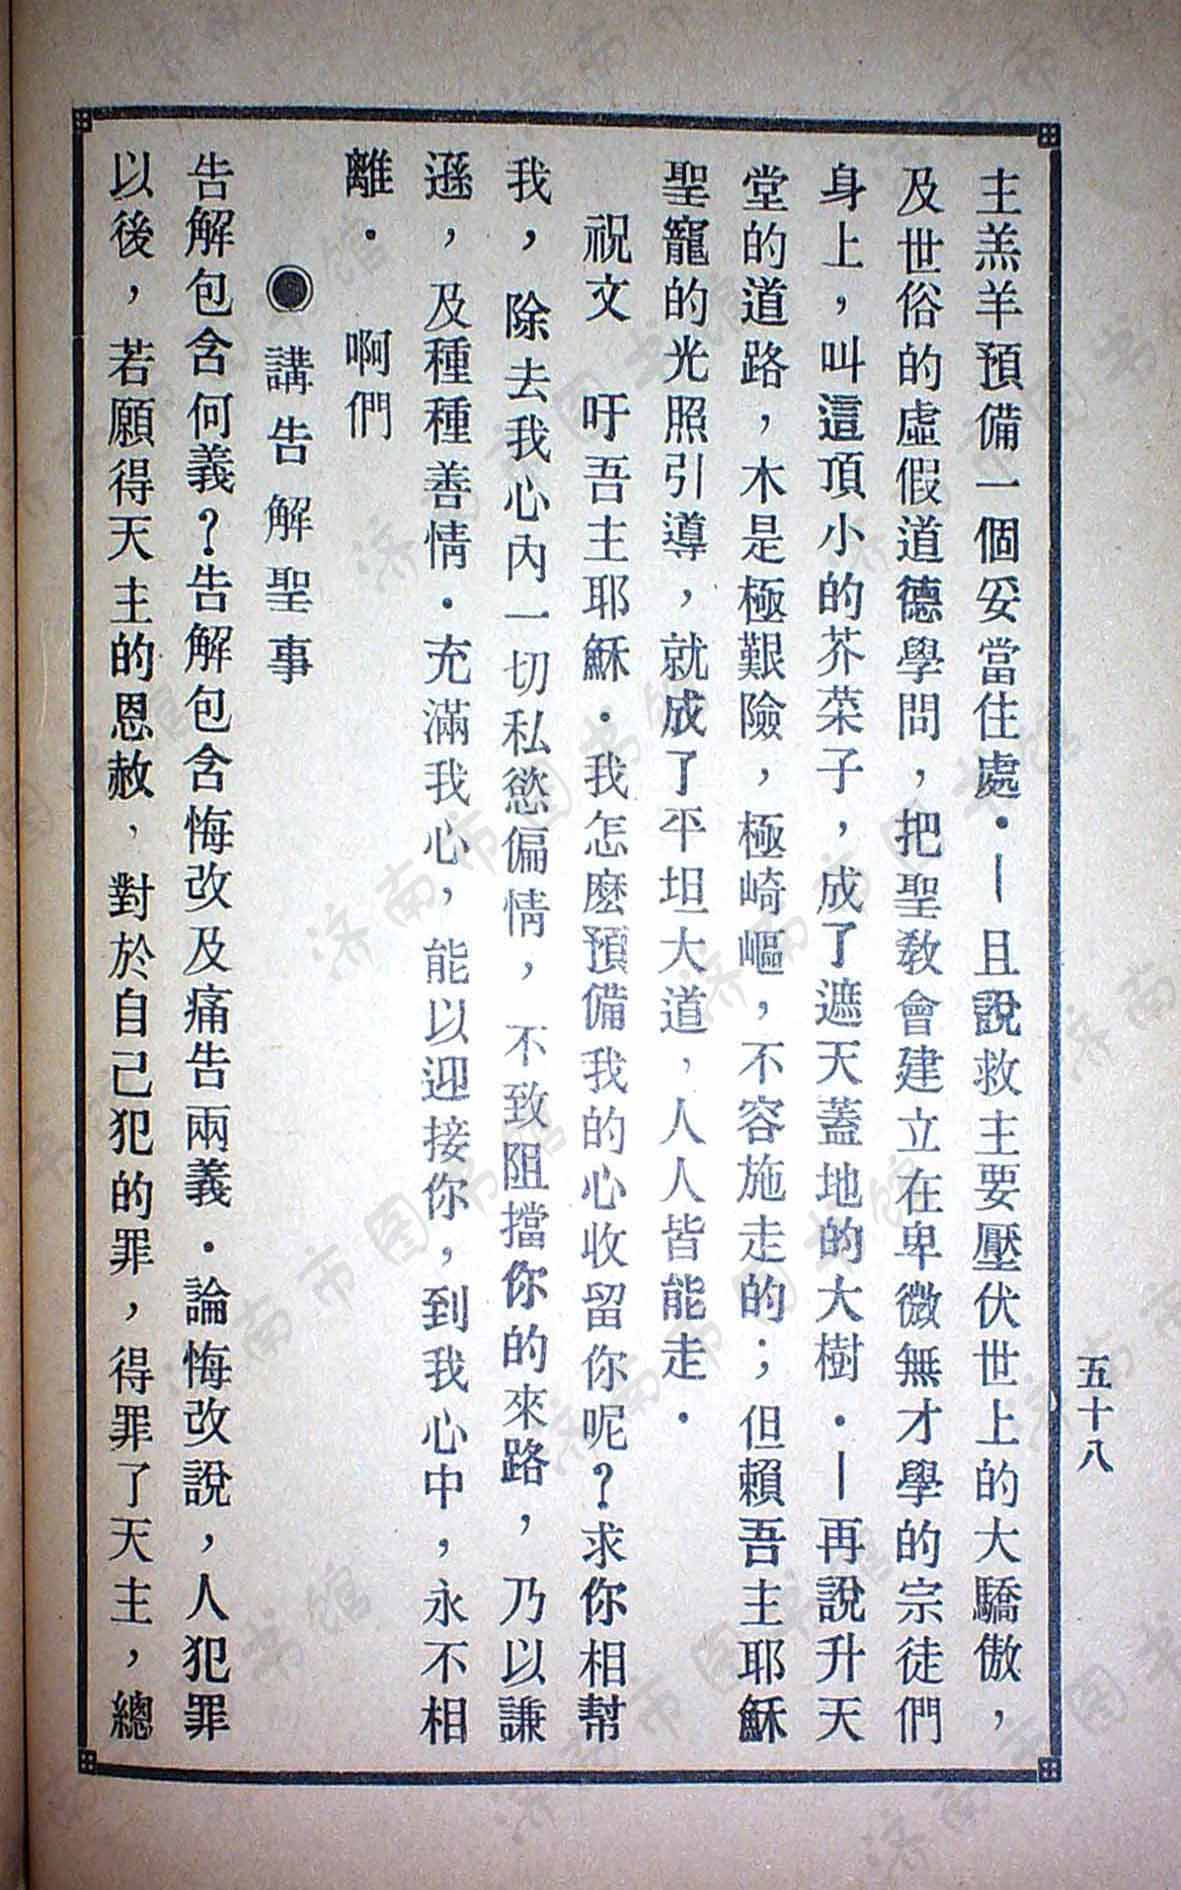 五十八
主羔羊預備一個妥當住處．—且說救主要壓伏世上的大驕傲，
及世俗的虛假道德學問，把聖教會建立在卑微無才學的宗徒們
身上，叫這頂小的芥菜子，成了遮天蓋地的大樹．—再說升天
堂的道路，木是極艱險，極崎嶇，不容施走的；但賴吾主耶穌
聖寵的光照引導，就成了平坦大道，人人皆能走．
祝文　吁吾主耶穌．我怎麼預備我的心收留你呢？求你相幫
我，除去我心內一切私慾偏情，不致阻擋你的來路，乃以謙
遜，及種種善情．充滿我心，能以迎接你，到我心中，永不相
離．　啊們
◉講告解聖事
告解包含何義？告解包含悔改及痛告兩義．論悔改說，人犯罪
以後，若願得天主的恩赦，對於自己犯的罪，得罪了天主，總
济南市图书馆